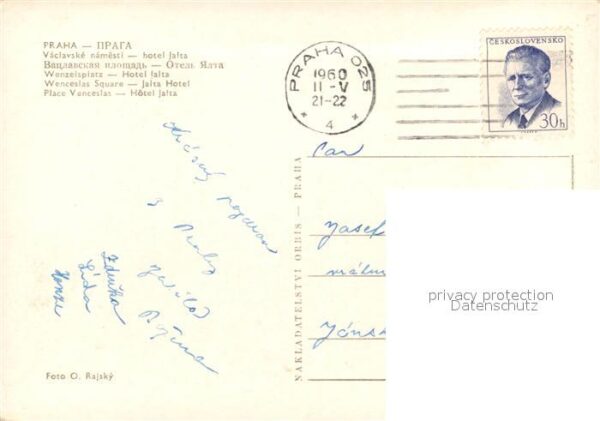 PRAHA — ПРАГА
Václavské náměstí — hotel Jalta
Вацлавская площадь — Отель Ялта
Wenzelsplatz — Hotel Jalta
Wenceslas Square — Jalta Hotel
Place Venceslas — Hôtel Jalta
PRAHA 025
1960
11-V
21-22
* 4 *
ČESKOSLOVENSKO
30h
Krásný pozdrav
z Prahy
Zdeňka
Lída
NAKLADATELSTVÍ ORBIS — PRAHA
Josef
Jánsk
privacy protection
Datenschutz
Foto O. Rajský